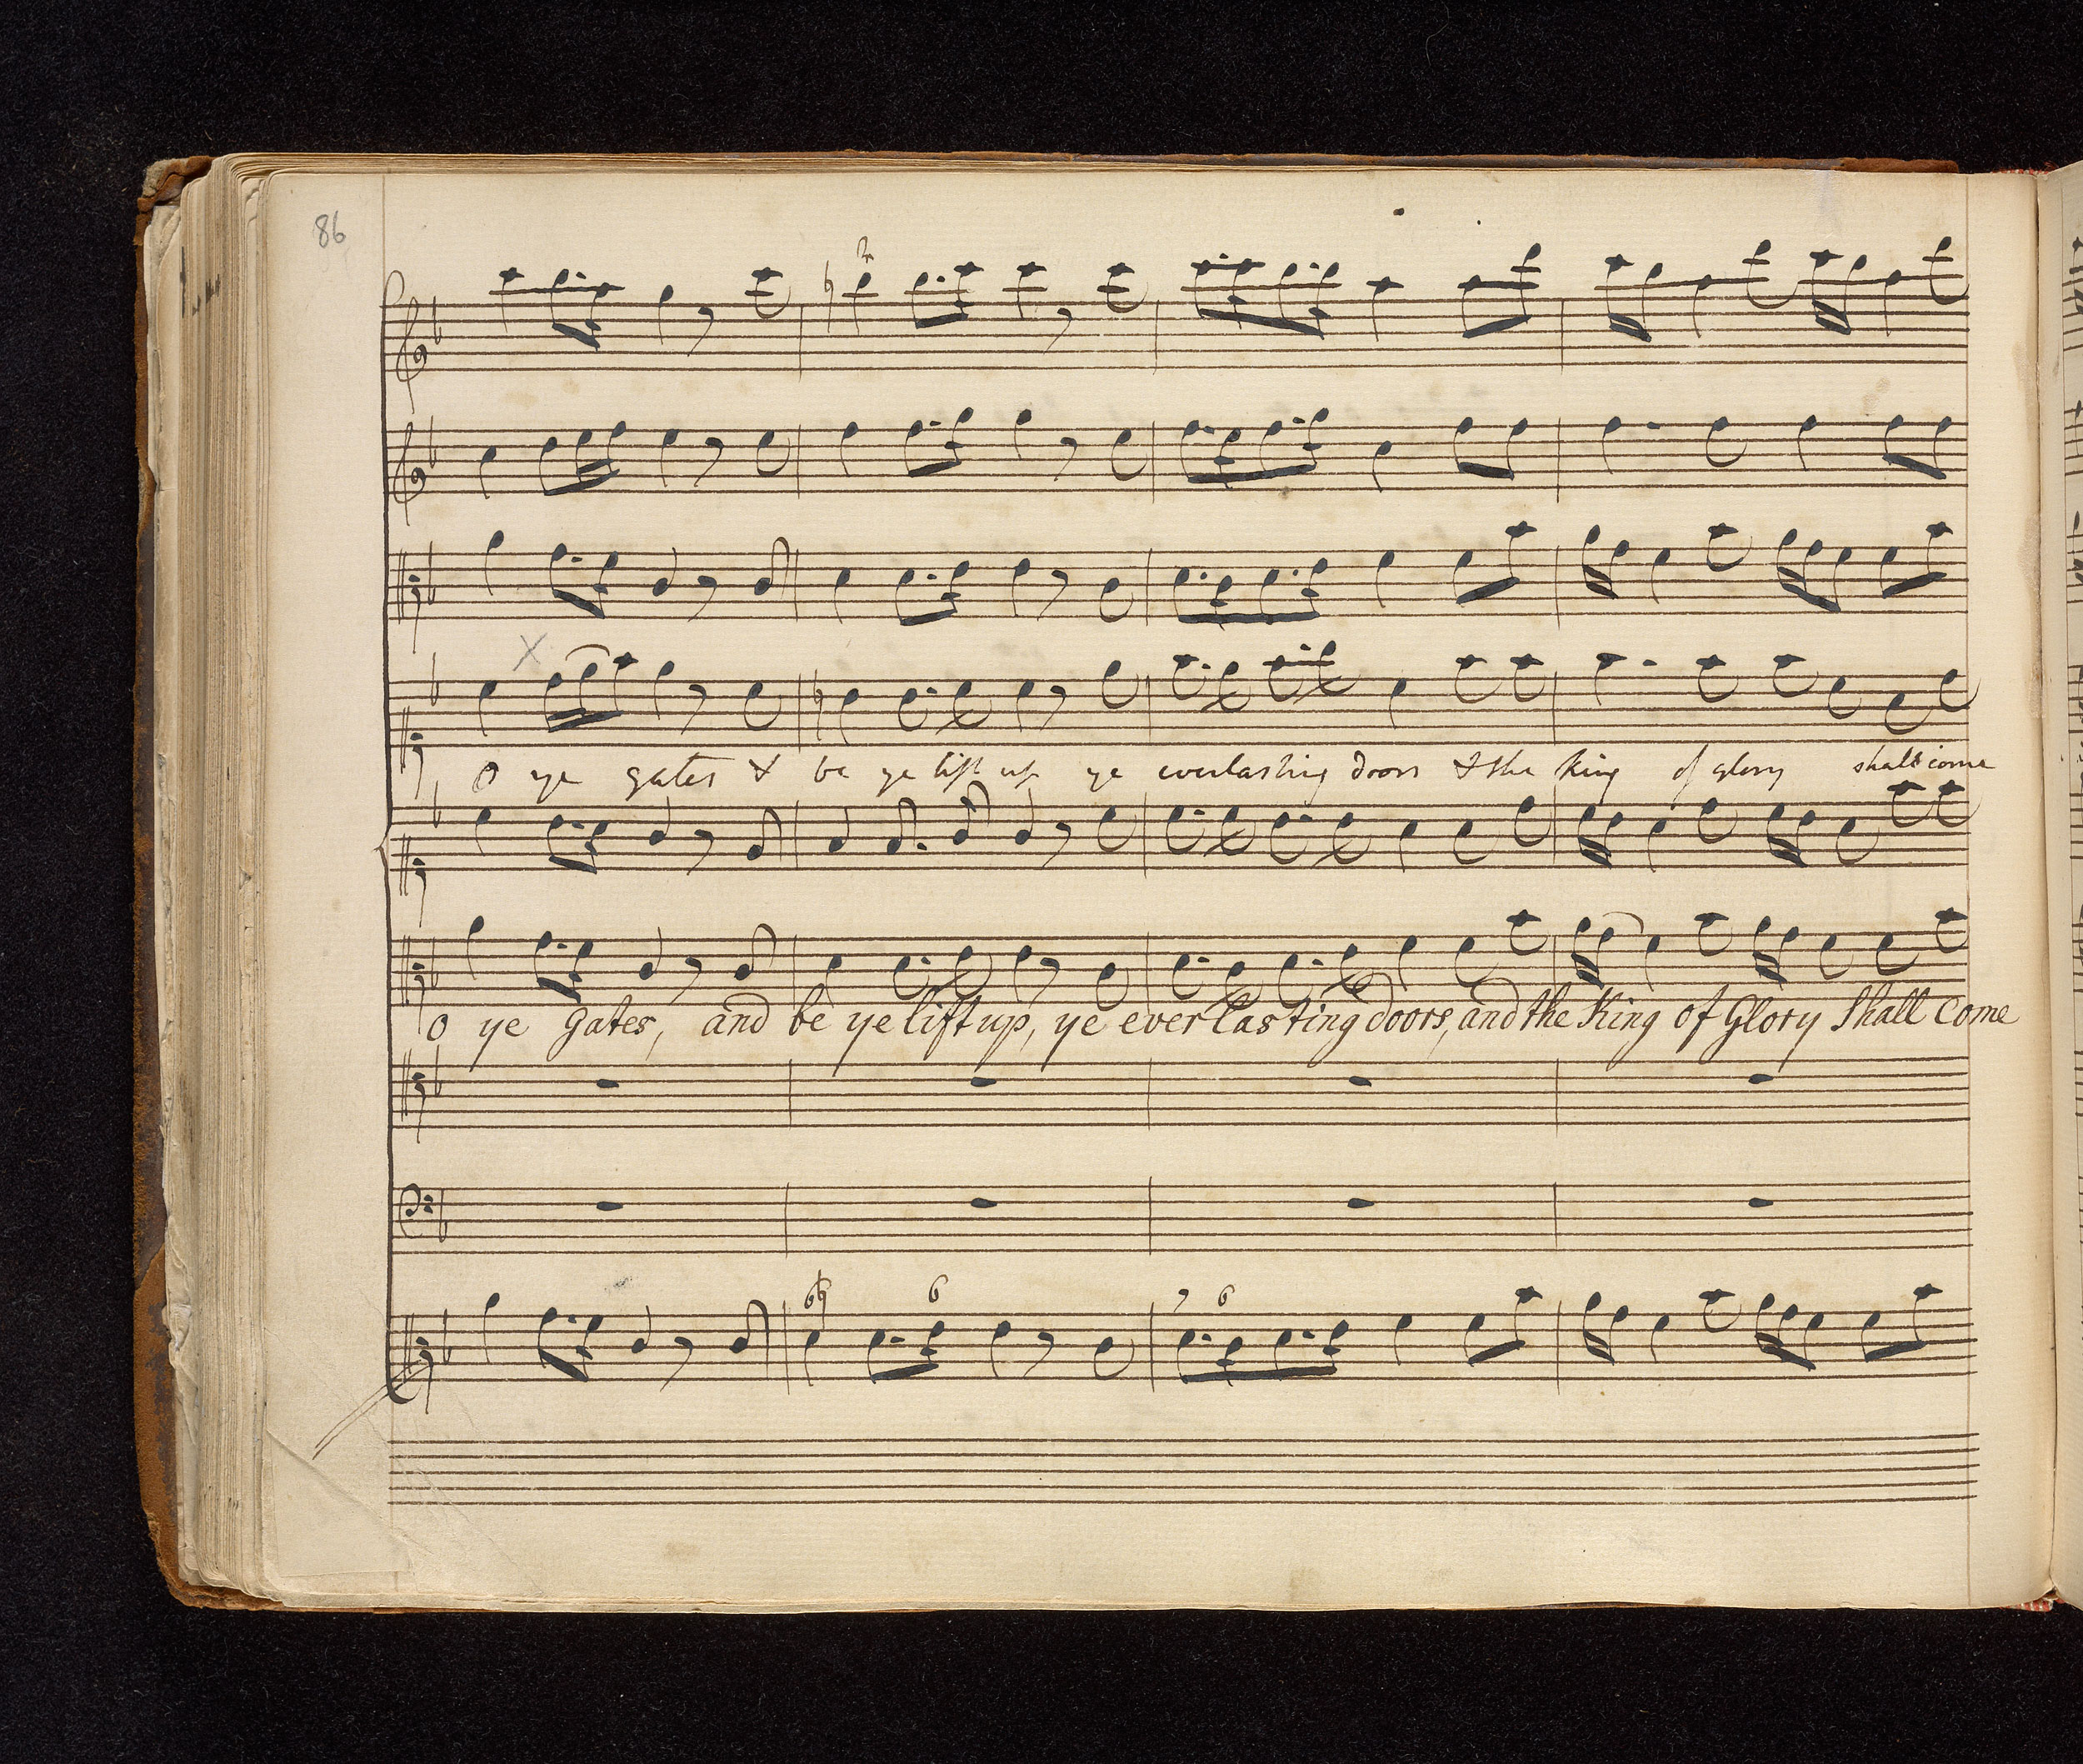 86
O ye gates & be ye lift up ye everlasting doors & the king of glory shall come
O ye gates, and be ye lift up, ye everlasting doors, and the King of Glory shall come
6 6
7 6